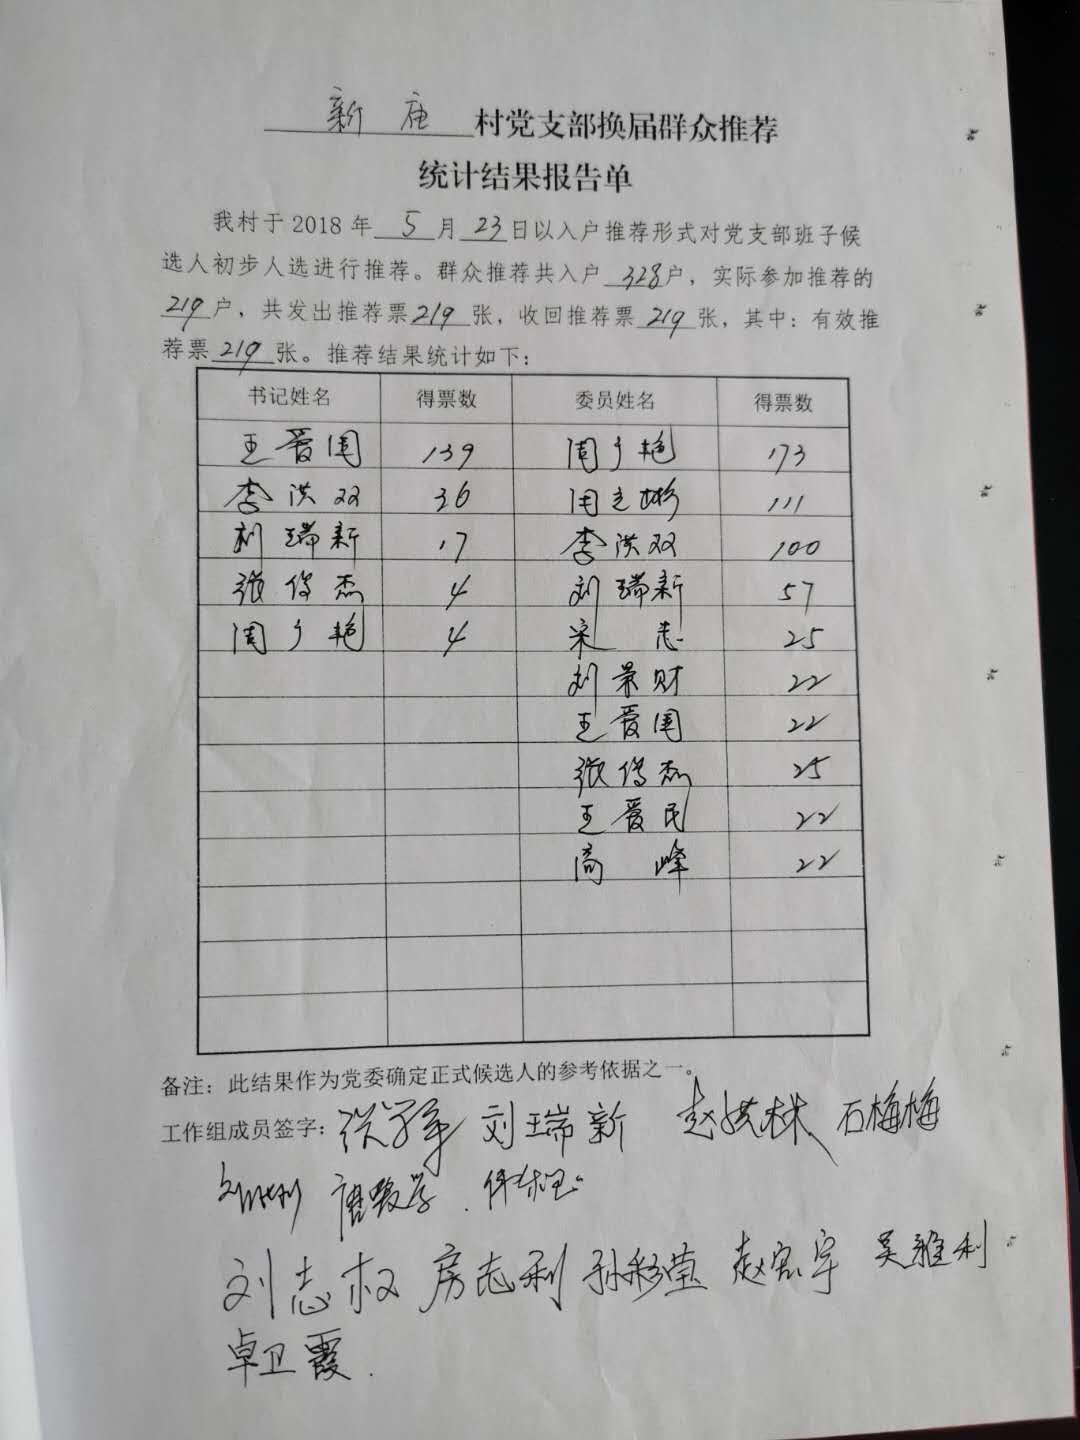 新庙村党支部换届群众推荐
统计结果报告单
我村于2018年5月23日以入户推荐形式对党支部班子候
选人初步人选进行推荐。群众推荐共入户328户，实际参加推荐的
219户，共发出推荐票219张，收回推荐票219张，其中：有效推
荐票219张。推荐结果统计如下：
书记姓名 得票数 委员姓名 得票数
王爱国 139 周乡艳 173
李洪双 36 周立彬 111
刘瑞新 17 李洪双 100
张俊杰 4 刘瑞新 57
周乡艳 4 宋志 25
刘景财 22
王爱国 22
张俊杰 25
王爱民 22
高峰 22
备注：此结果作为党委确定正式候选人的参考依据之一。
工作组成员签字： 刘瑞新 赵洪林 石梅梅
刘志权 房志利 孙彩莹 赵宏宇 吴雅利
卓卫霞.